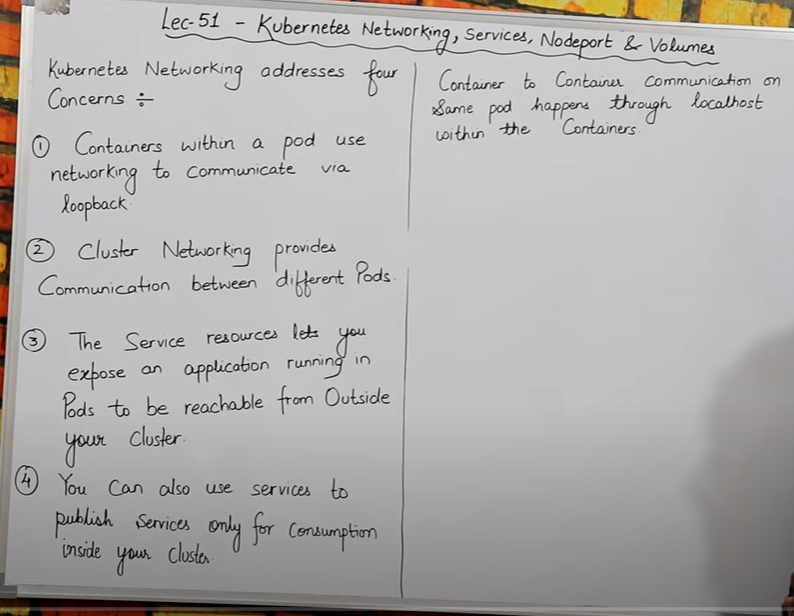 Lec-51 - Kubernetes Networking, Services, Nodeport & Volumes
Kubernetes Networking addresses four
Concerns ÷
① Containers within a pod use
networking to communicate via
loopback.
② Cluster Networking provides
Communication between different Pods.
③ The Service resources lets you
expose an application running in
Pods to be reachable from Outside
your Cluster.
④ You Can also use services to
publish Services only for Consumption
inside your Cluster.
Container to Container communication on
Same pod happens through localhost
within the Containers.